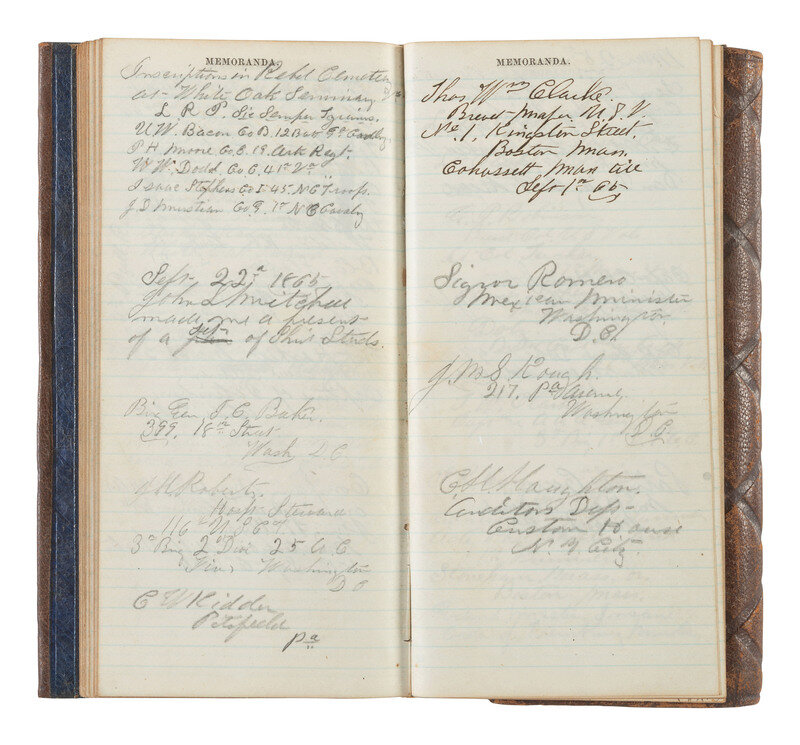 MEMORANDA.
Inscriptions in Rebel Cemetery
at White Oak Seminary
L. R. P. Sic Semper Tyrannis.
U. W. Bacon Co D. 12 Cavalry
P H Moore Co. E. 19. Ark Regt.
W W. Dodd. Co C. 41st Va
Isaac Stephens Co I 45 N C Troops.
J. D. Co. G. 1st N C Cavalry
Sept. 22d 1865
John L Mitchell
made me a present
of a set of Shirt Studs.
Brig Gen. L. C. Baker.
399. 18th Street
Wash D. C.
J H Roberts.
Hosp. Steward
116th U. S. C. T.
3d Brig 2d Div 25 A. C.
Washington
D C
C W Kidder
Pa
MEMORANDA.
Thos Wm Clarke.
Brevet Major U. S. V.
No. 1, Kingston Street.
Boston Mass.
Cohassett Mass till
Sept 1st 65
Signor Romero
Mexican Minister
Washington
D. C.
J. M. S. Rough.
217. Pa Avenue.
Washington
D. C.
C H Haughton.
Auditors Dept
Custom House
N. Y. City